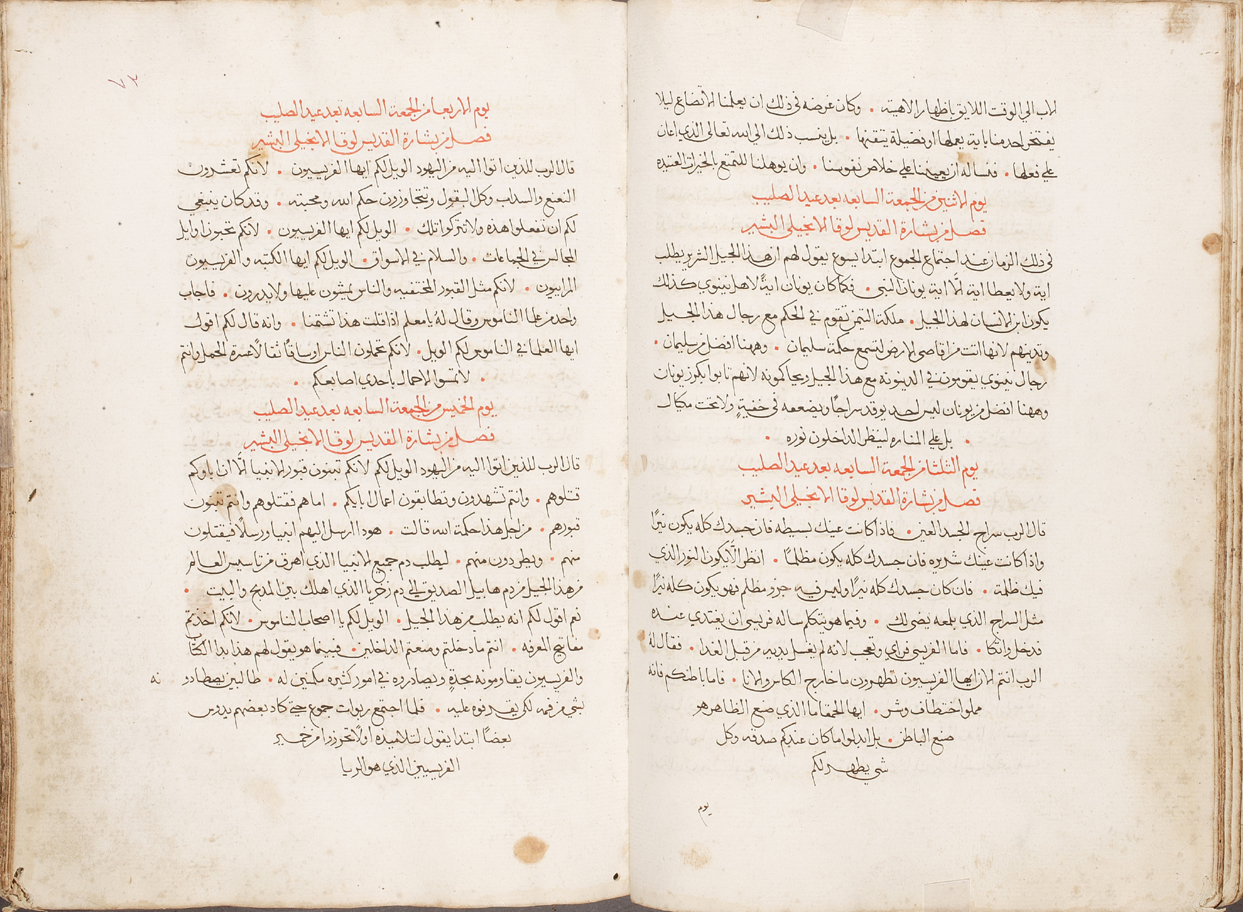 الاب الي الوقت اللايق باظهار الاهيته • وكان غرضه في ذلك ان يعلمنا الاتضاع ليلا
يفتخر احد منا باية يعملها او فضيلة يتقنها • بل ينسب ذلك الي الله تعالي الذي اعان
علي فعلها • فنساله ان يعيننا علي خلاص نفوسنا • وان يوهلنا للتمتع بالخيرات العتيده
يوم الاثنين من الجمعة السابعه بعد عيد الصليب
فصل من بشارة القديس لوقا الانجيلي البشير
في ذلك الزمان عند اجتماع الجموع ابتدا يسوع يقول لهم ان هذا الجيل الشرير يطلب
اية ولا يعطا اية الّا اية يونان النبي • فكما كان يونان ايةً لاهل نينوي كذلك
يكون ابن الانسان لهذا الجيل • ملكة التيمن تقوم في الحكم مع رجال هذا الجيل
وتدينهم لانها اتت من اقاصي الارض لتسمع حكمة سليمان • وههنا افضل من سليمان •
رجال نينوي يقومون في الدينونه مع هذا الجيل ويحاكمونه لانهم تابوا بكرز يونان
وههنا افضل من يونان ليس احد يوقد سراجًا ويضعه في خفيةٍ ولا تحت مكيال
• بل علي المناره لينظر الداخلون نوره •
يوم الثلثا من الجمعة السابعه بعد عيد الصليب
فصل من بشارة القديس لوقا الانجيلي البشير
قال الرب سراج الجسد العين • فاذا كانت عينك بسيطه فان جسدك كله يكون نيرًا
واذا كانت عينك شريره فان جسدك كله يكون مظلمًا • انظر الّا يكون النور الذي
فيك ظلمة • فان كان جسدك كله نيرًا وليس فيه جزو مظلم فهو يكون كله نيرًا
مثل السراج الذي بلمعه يضي لك • وفيما هو يتكلم ساله فريسي ان يغتدي عنده
فدخل واتكا • فاما الفريسي فراي وتعجب لانه لم يغسل يديه من قبل الغدا • فقال له
الرب انتم الان ايها الفريسيون تطهرون ما خارج الكاس والانا • فاما باطنكم فانه
مملو اختطاف وشر • ايها الجهّا اما الذي صنع الظاهر هو
صنع الباطن • بل ابدلوا ما كان عندكم صدقه وكل
شي يطهر لكم
يوم
٧٣
يوم الاربعا من الجمعة السابعه بعد عيد الصليب
فصل من بشارة القديس لوقا الانجيلي البشير
قال الرب للذين اتوا اليه من اليهود الويل لكم ايها الفريسيون • لانكم تعشرون
النعنع والسداب وكل البقول وتتجاوزون حكم الله ومحبته • وقد كان ينبغي
لكم ان تفعلوا هذه ولا تتركوا تلك • الويل لكم ايها الفريسيون • لانكم تحبون اوايل
المجالس في الجماعات • والسلام في الاسواق • الويل لكم ايها الكتبه والفريسيون
المرايون • لانكم مثل القبور المختفيه والناس يمشون عليها ولا يدرون • فاجاب
واحد من علما الناموس وقال لهُ يا معلم اذا قلت هذا تشتمنا • وانه قال لكم اقول
ايها العلما في الناموس لكم الويل • لانكم تحملون الناس اوساقًا ثقالًا عسرة الحمل وانتم
• لا تمسوا الاحمال باحدي اصابعكم •
يوم الخميس من الجمعة السابعه بعد عيد الصليب
فصل من بشارة القديس لوقا الانجيلي البشير
قال الرب للذين اتوا اليه من اليهود الويل لكم لانكم تبنون قبور الانبيا الّا ان اباوكم
قتلوهم • وانتم تشهدون وتطابقون اعمال ابايكم • اما هم فقتلوهم وانتم تبنون
قبورهم • من اجل هذا حكمة الله قالت • هوذا ارسل اليهم انبيا ورسلًا فيقتلون
منهم • ويطردون منهم • ليطلب دم جميع الانبيا الذي اهرق من تاسيس العالم
من هذا الجيل من دم هابيل الصديق الي دم زخريا الذي اهلك بين المذبح والبيت •
نعم اقول لكم انه يطلب من هذا الجيل • الويل لكم يا اصحاب الناموس • لانكم اخذتم
مفاتيح المعرفه • انتم ما دخلتم ومنعتم الداخلين • فبينما هو يقول لهم هذا بدا الكتبة
والفريسيون يقاومونه بحدةٍ ويصادروه في امور كثيره مكمنين له • طالبين يصطادو
نه
بشي من فمه لكي يقدفوه عليه • فلما اجتمع ربوات جموع حتي كاد بعضهم يدوس
بعضًا ابتدا يقول لتلاميذه اولًا تحرزوا من خمير
الفريسيين الذي هو الريا